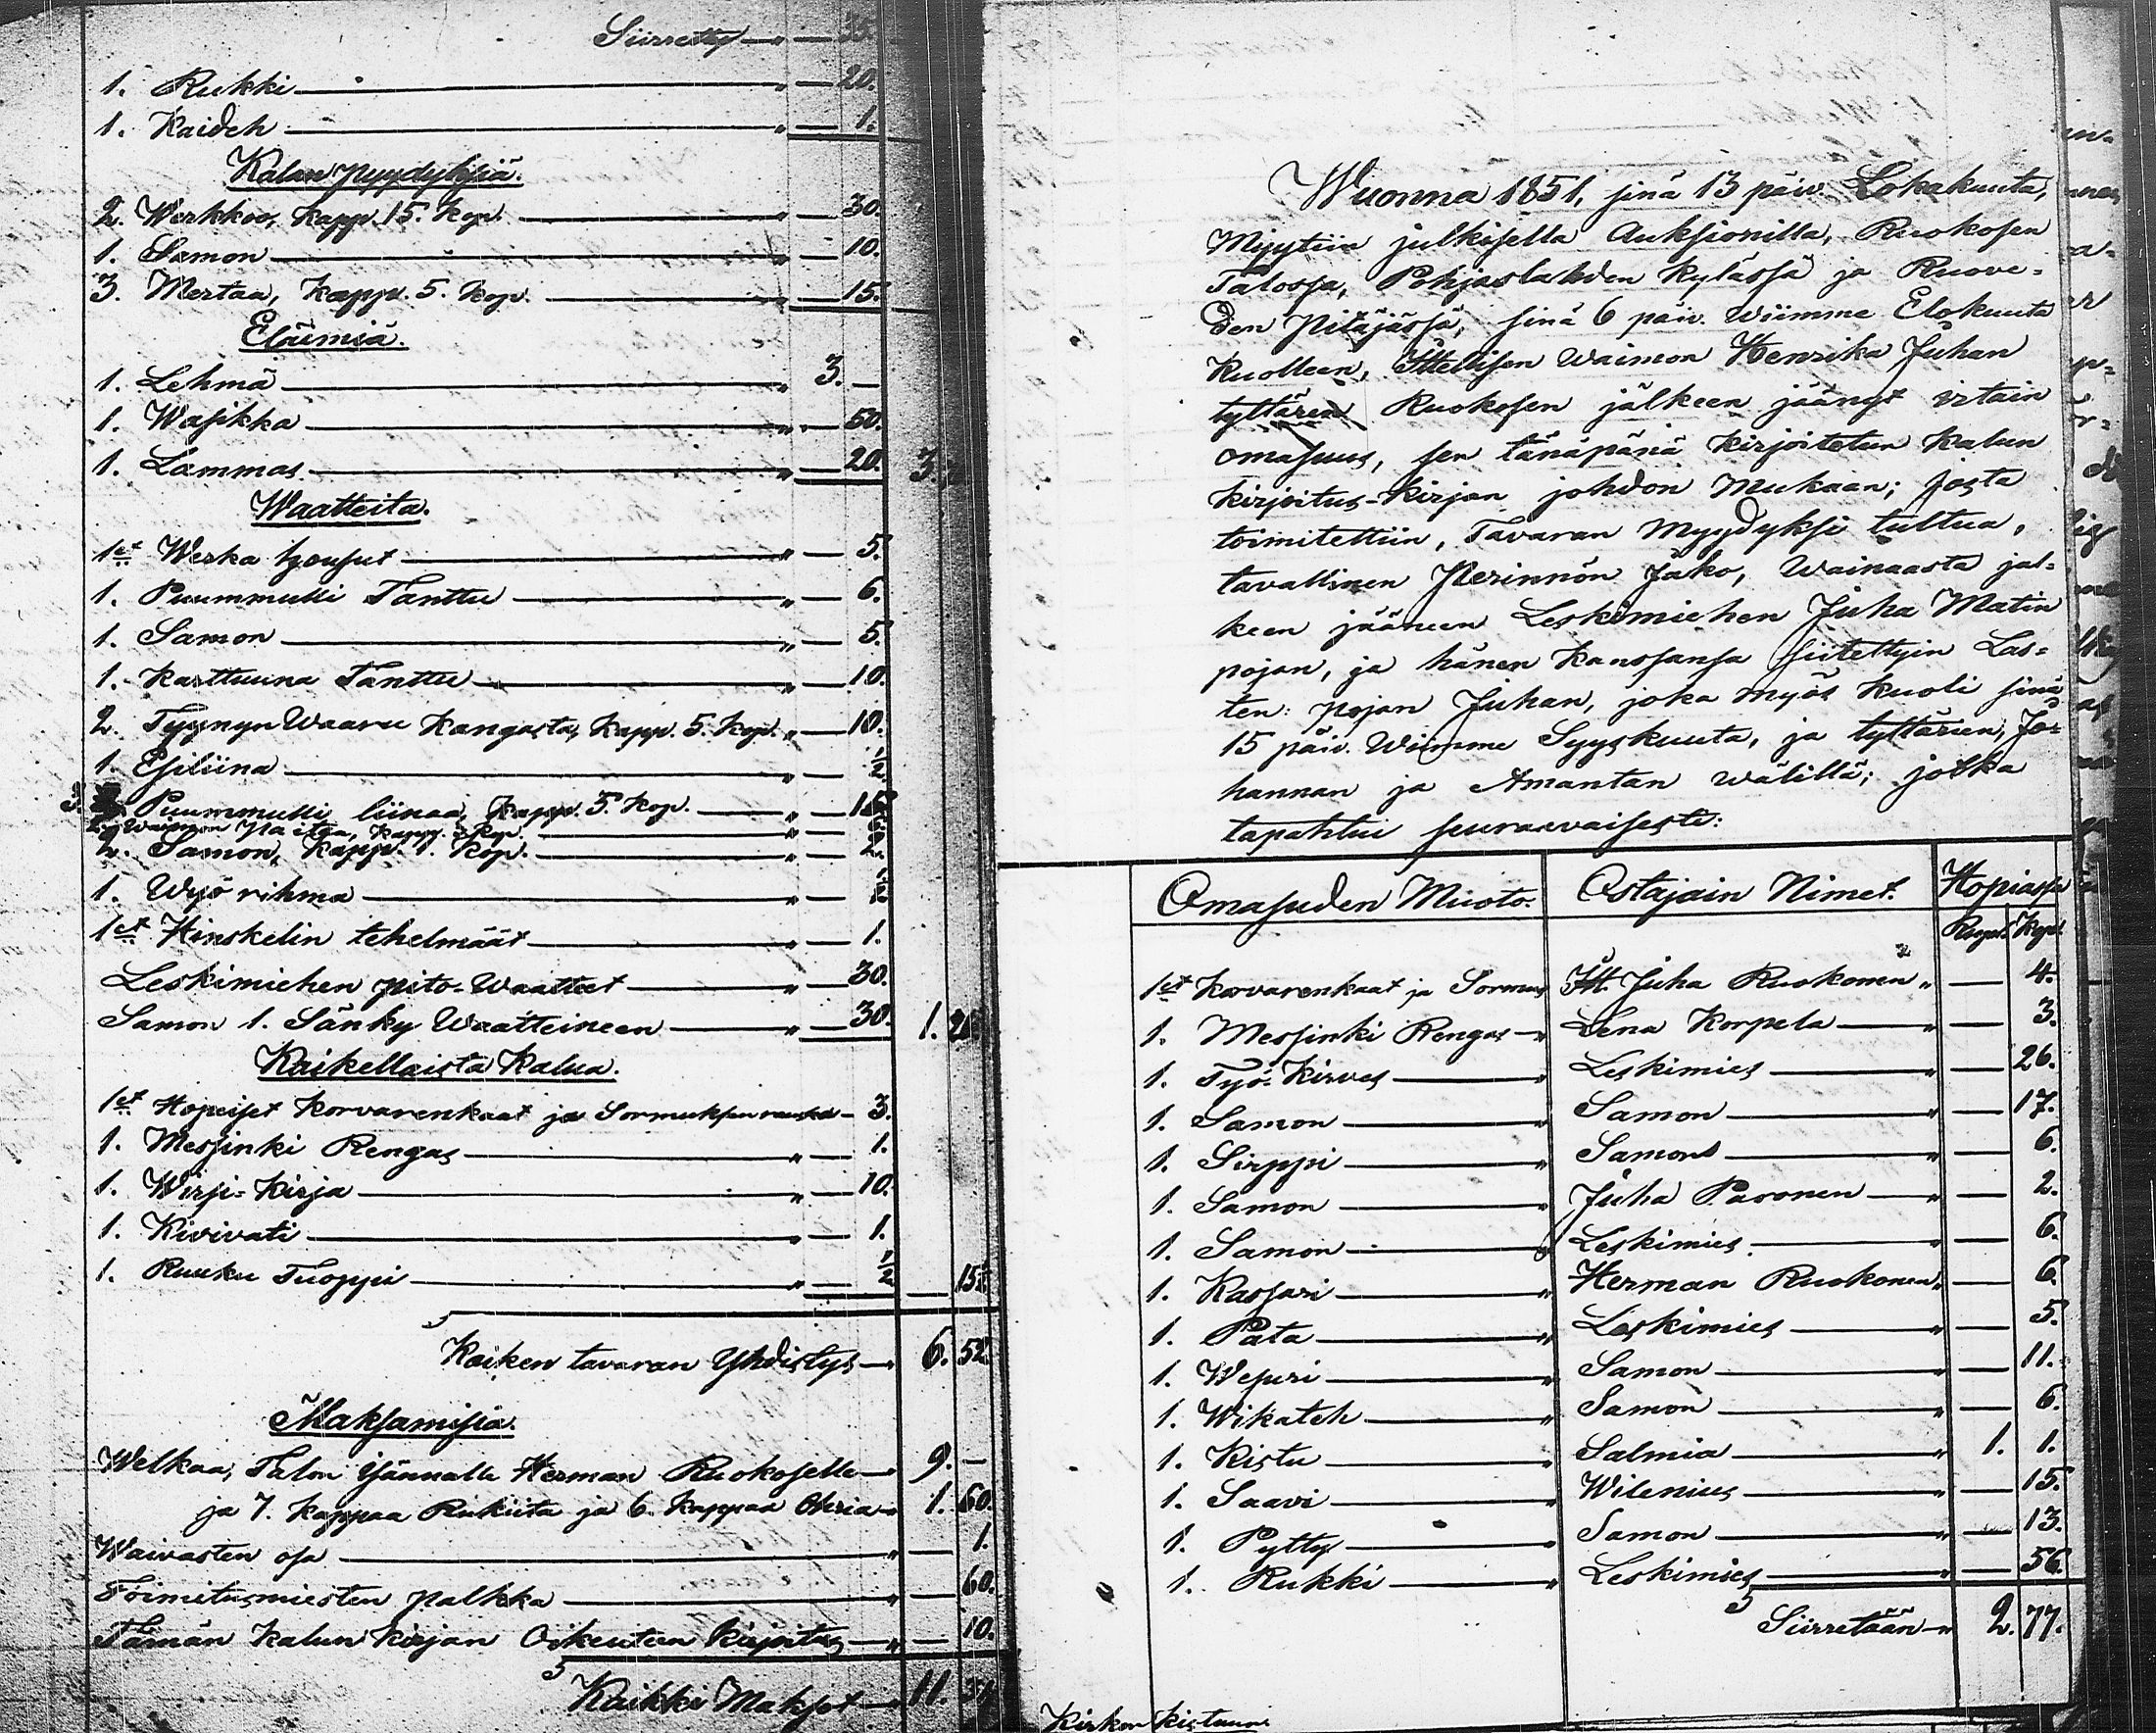 Siirretty — " — 35.
1. Rukki — " — 20.
1. Kaideh — " — 1.
Kalan pyydyksiä.
2. Werkkoo, kapp. 15. Kop. — " — 30.
1. Samon — " — 10.
3. Mertaa, Kapp. 5. Kop. — " — 15.
Eläimiä.
1. Lehmä — " 3. —
1. Wasikka — " — 50.
1. Lammas — " — 20. 3.
Waatteita.
1et Werka housut — " — 5.
1. Puummulli Tanttu — " — 6.
1. Samon — " — 5.
1. Karttuuna Tanttu — " — 10.
2. Tyynyn Waaru Kangasta, Kapp. 5. Kop. " — 10.
1. Esiliina — " — 1/2.
3. Puummulli liinaa, Kapp. 5. Kop. — " — 15.
2. Waimon Paitaa, Kapp. 3. Kop. — " —
2. Samon, Kapp. 1. Kop. — " — 2.
1. Wyö rihma — " — 1/2.
1et Hinskelin tehelmäät — " — 1.
Leskimiehen pito-Waatteet — " — 30.
Samon 1. Sänky Waatteineen — " — 30. 1.
Kaikellaista Kalua.
1et Hopeiset Korvarenkaat ja Sormuksen rauska — 3.
1. Messinki Rengas — " — 1.
1. Wirsi-Kirja — " — 10.
1. Kivivati — " — 1.
1. Ruuku Tuoppi — " — 1/2 — 15 1/2
Kaiken tavaran Yhdistys — " 6. 52.
Maksamisia.
Welkaa, Talon Isännälle Herman Ruokoselle — " 9. —
ja 7. Kappaa Rukiita ja 6. Kappaa Ohria — " 1. 60.
Waivasten osa — " — 1.
Toimitusmiesten palkka — " — 60.
Tämän Kalun kirjan Oikeuteen kirjoitus — " — 10.
Kaikki Maksot — " 11.
Wuonna 1851, sinä 13 päiv. Lokakuuta,
Myytiin julkisella Auksionilla, Ruokosen
Talossa, Pohjaslahden Kylässä ja Ruove-
den Pitäjässä, sinä 6 päiv. Wiimme Elokuuta
Kuolleen, Ittellisen Waimon Henrika Juhan
tyttären Ruokosen jälkeen jäänyt irtain
omasuus, sen tänäpänä Kirjoitetun Kalun
kirjoitus-Kirjan johdon Mukaan; josta
toimitettiin, Tavaran Myydyksi tultua,
tavallinen Perinnön Jako, Wainaasta jal-
keen jääneen Leskimiehen Juha Matin
pojan, ja hänen Kanssansa siitettyin Las-
ten: pojan Juhan, joka myös kuoli sinä
15 päiv. Wiimme Syyskuuta, ja tyttärien, Jo-
hannan ja Amantan wälillä; jotka
tapahtui seuraavaisesti:
Omasuden Muoto. Ostajain Nimet. Hopiassa
Rupl. Kop.
1et Korvarenkaat ja Sormus Itt. Juha Ruokonen " — 4.
1. Messinki Rengas — " Lena Korpela — " — 3.
1. Työ-Kirves — " Leskimies — " — 26.
1. Samon — " Samon — " — 17.
1. Sirppi — " Samon — " — 6.
1. Samon — " Juha Paronen — " — 2.
1. Samon — " Leskimies — " — 6.
1. Kassari — " Herman Ruokonen " — 6.
1. Pata — " Leskimies — " — 5.
1. Wesuri — " Samon — " — 11.
1. Wikateh — " Samon — " — 6.
1. Kistu — " Salmia — " 1. 1.
1. Saavi — " Wilenius — " — 15.
1. Pytty — " Samon — " — 13.
1. Rukki — " Leskimies — " — 56.
Siirretään — " 2. 77.
Kirkon kistuun